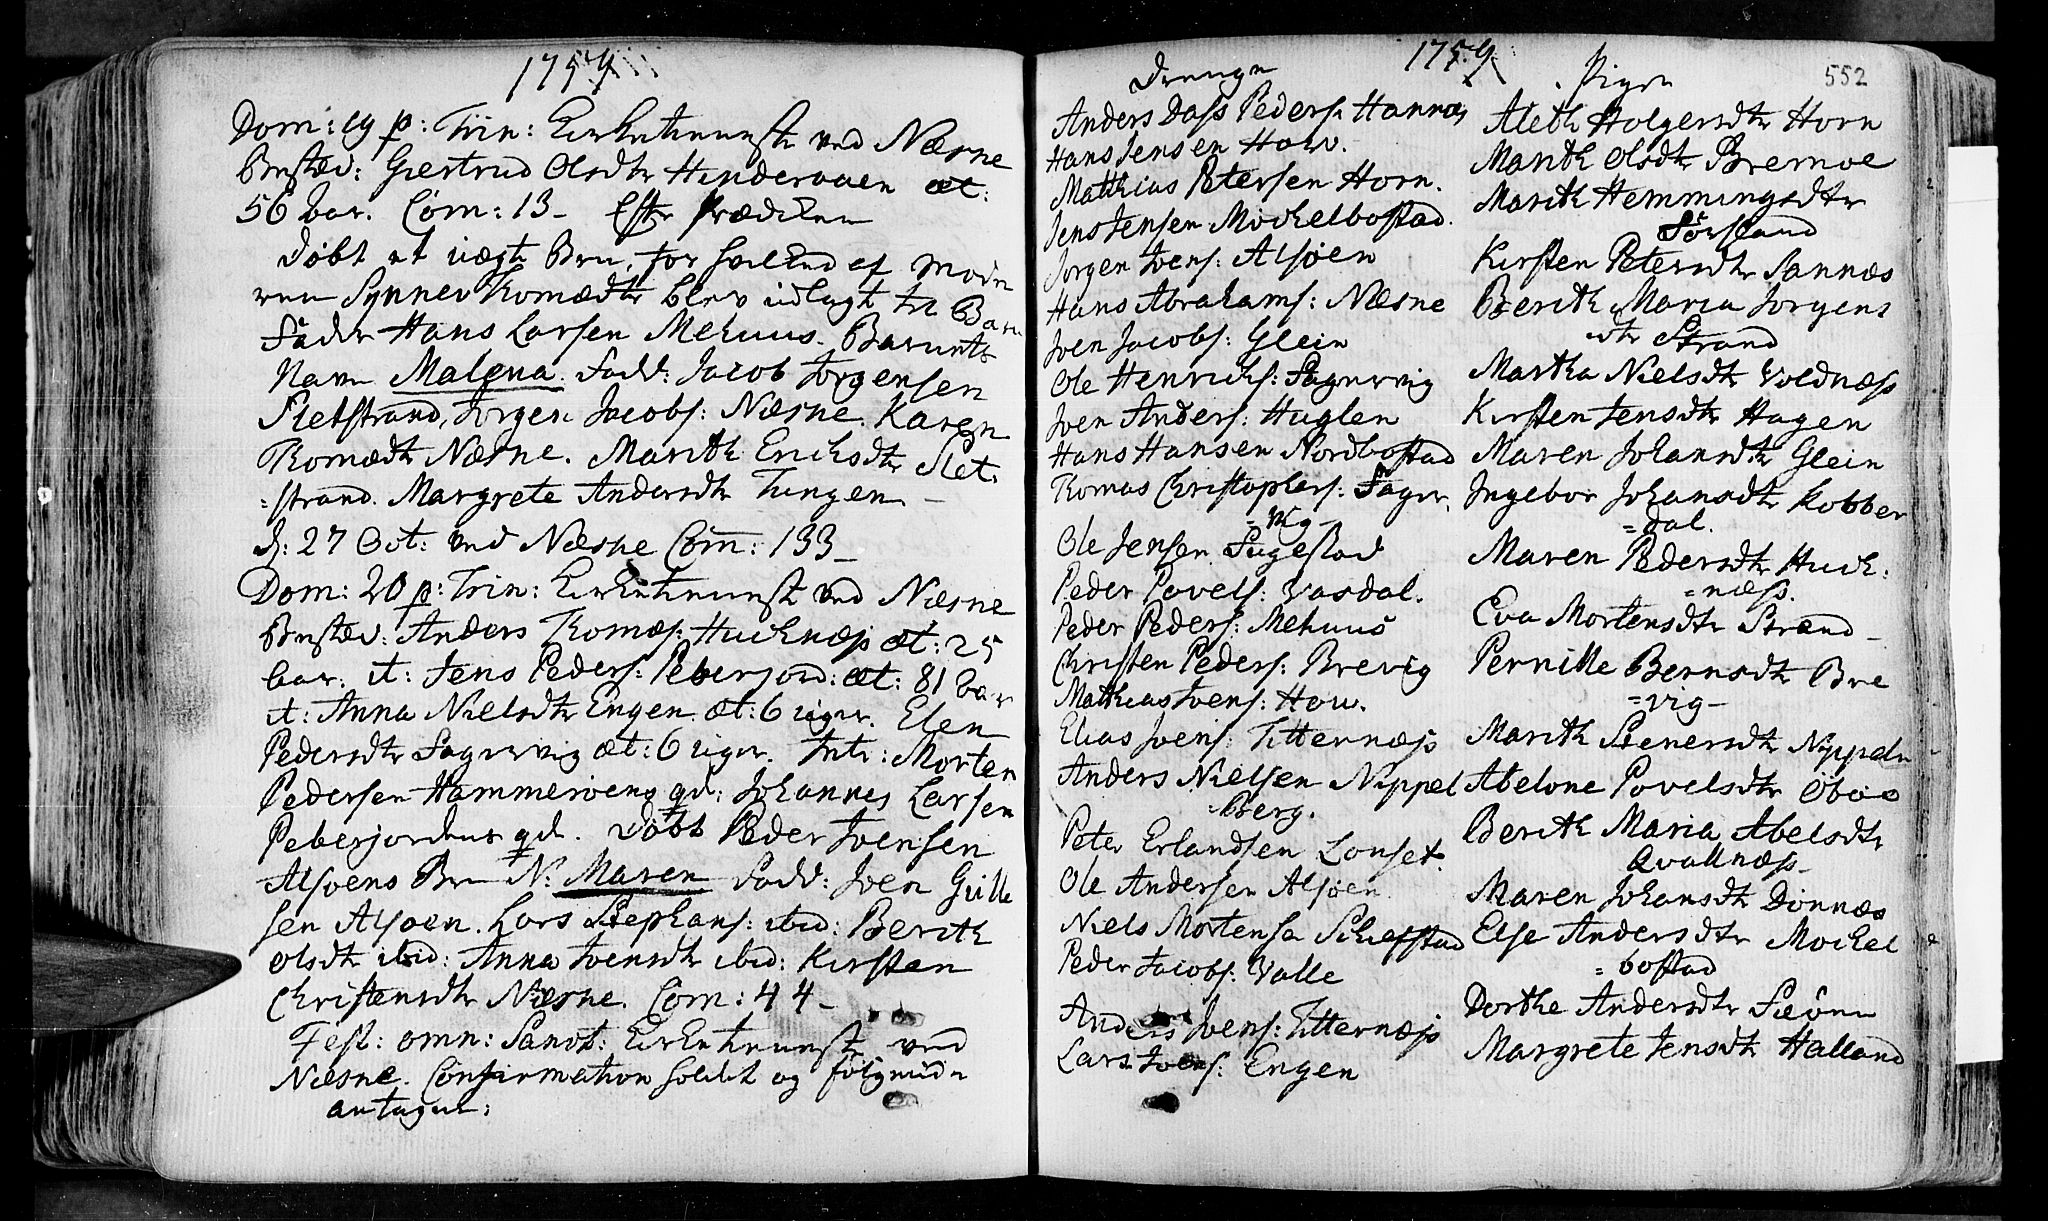 1759
Dom: 19 p: Trin: Kirketieniste ved Næsne
Begr: Giertrud Olsdtr Hinderaaen æt:
56 aar. Com: 13 - Efter Prædiken
døbt et uægte Barn, for hvilked af Mode
ren Synnev Thomædtr blev udlagt til Barn
Fader Hans Larsen Mehuus. Barnets
Navn Malena. Fadd: Jacob Jørgensen
Sletstrand, Jørgen Jacobs: Næsne. Karen
Thomædtr Næsne. Marith Eriksdtr Slet
=strand. Margrete Andersdtr Tungen -
d: 27 Oct: ved Næsne Com: 133 -
Dom: 20 p: Trin: Kirketieniste ved Næsne
Anders Thomæs: Huiknæss æt: 25
aar. it: Jens Peders: Peberjord: æt: 81 aar
it: Anna Nielsdtr Engen. æt: 6 uger. Elen
Pedersdtr Fagervig æt: 6 uger. Intr: Morten
Pedersen Hammerøens qd: Johannes Larsen
Peberjordens qd. Døbt Peder Ivensen
Alsøens Barn N: Maren Fadd: Iven Gulle
sen Alsøen. Lars Stephans: ibid: Berith
Olsdtr ibid: Anna Ivensdtr ibid: Kirsten
Christensdtr Næsne. Com: 44 -
Fest: omn: Sanct: Kirketieniste ved
Næsne. Confirmation holdet og følgende
antagne:
1759
552
Drenge
Anders Dass Peders: Hannæs
Hans Jensen How.
Matthias Petersen Horn.
Jens Jensen Mockelbostad.
Jørgen Ivens: Alsøen
Hans Abrahams: Næsne
Iven Jacobs: Glein
Ole Henrichs: Fagervig
Iven Anders: Huglen
Hans Hansen Nordbostad
Thomas Christophers: Fager
=vig -
Ole Jensen Fugestad
Peder Povels: Vasdal.
Peder Peders: Mehuus
Christen Peders: Brevig
Matthias Ivens: How.
Elias Ivens: Titternæss
Anders Nielsen Nippel
berg.
Peter Erlandsen Lonset
Ole Andersen Alsøen
Niels Mortensen
Peder Jacobs: Valle
Anders Ivens: Titternæss
Lars Ivens: Engen
Piger
Aleth Holgersdtr Horn
Marith Olsdtr Bremoe
Marith Hemmingsdtr
Førsland
Kirsten Petersdtr Sannæs
Berith Maria Jorgens
dtr Strand
Martha Nielsdtr Voldnæss
Kirsten Jensdtr Hagen
Maren Johansdtr Glein
Ingebor Johansdtr Kobber
=dal.
Maren Pedersdtr Huik:
=næss.
Eva Mortensdtr Strand -
Pernille Berntsdtr Bre
=vig -
Marith Stenersdtr Nippeln
Abelone Povelsdtr
Berith Maria Abelsdtr
Qvallnæss -
Maren Johansdtr Dønnæs
Else Andersdtr Mockel
=bostad
Dorthe Andersdtr
Margrete Jensdtr Halland